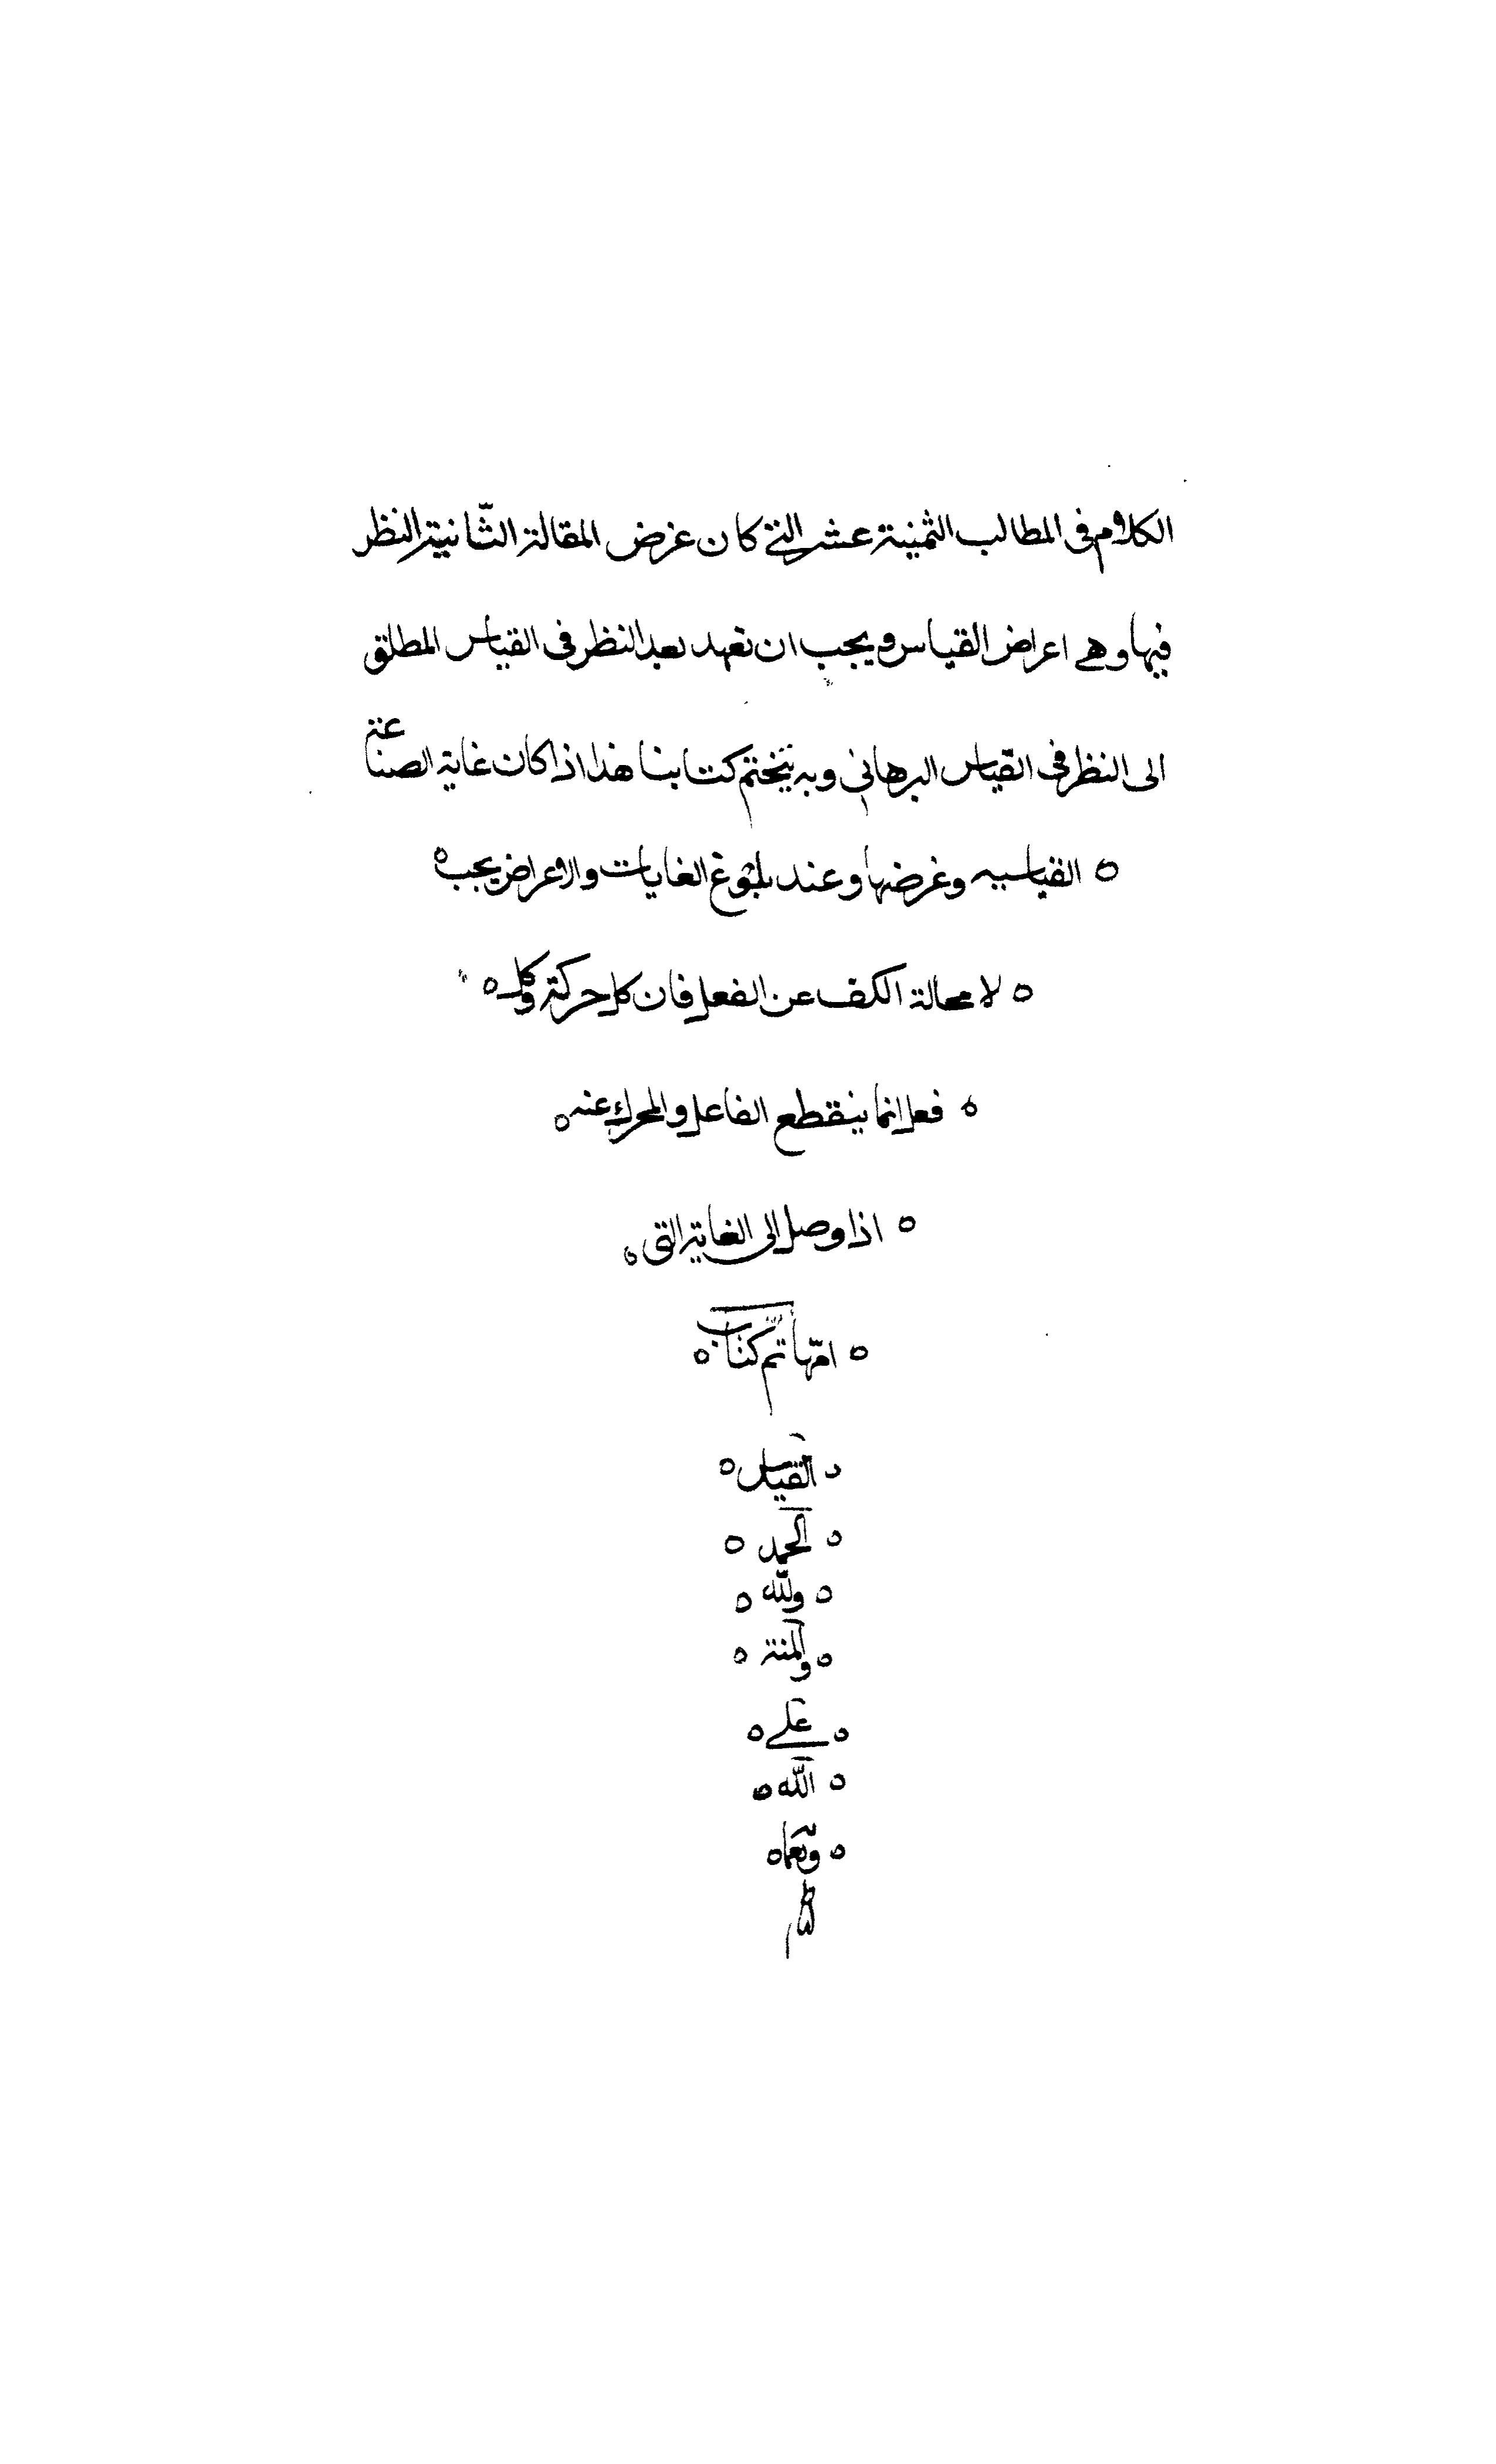 الكلام فى المطالب الثمنية عشر التى كان غرض المقالة الثّانية النظر
فيها وهى اعراض القياس ويجب ان نعهد بعد النظر فى القياس المطلق
الى النظر فى القياس البرهانى وبه نختم كتابنا هذا اذ كان غاية الصناعة
ه القياسيه وغرضها وعند بلوغ الغايات والاعراض يجب ه
ه لا محالة الكف عن الفعل فان كل حركة وكل ه
ه فعل انما ينقطع الفاعل والمحرك عنه ه
ه اذا وصل الى الغاية التى ه
ه امّها تم كتاب ه
ه القياس ه
ه الحمد ه
ه ولله ه
ه والمنة ه
ه على ه
ه الله ه